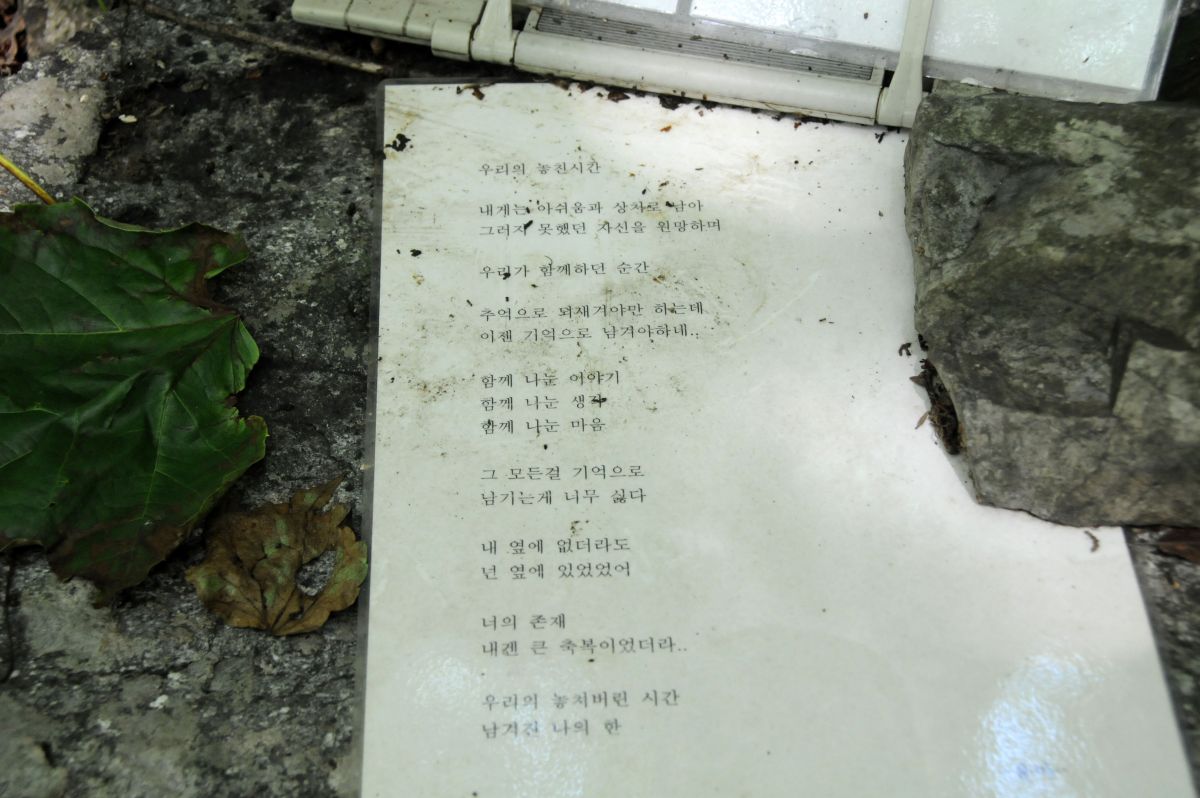 우리의 놓친시간
내게는 아쉬움과 상처로 남아
그러지 못했던 자신을 원망하며
우리가 함께하던 순간
추억으로 되새겨야만 하는데
이젠 기억으로 남겨야하네..
함께 나눈 이야기
함께 나눈 생각
함께 나눈 마음
그 모든걸 기억으로
남기는게 너무 싫다
내 옆에 없더라도
넌 옆에 있었었어
너의 존재
내겐 큰 축복이었더라..
우리의 놓쳐버린 시간
남겨진 나의 한